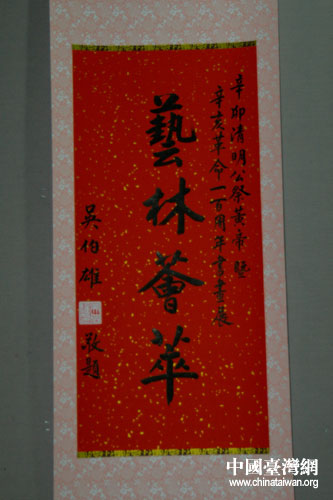 辛卯清明公祭黃帝暨
辛亥革命一百周年書畫展
藝林薈萃
吳伯雄
敬題
中國臺灣網
www.chinataiwan.org